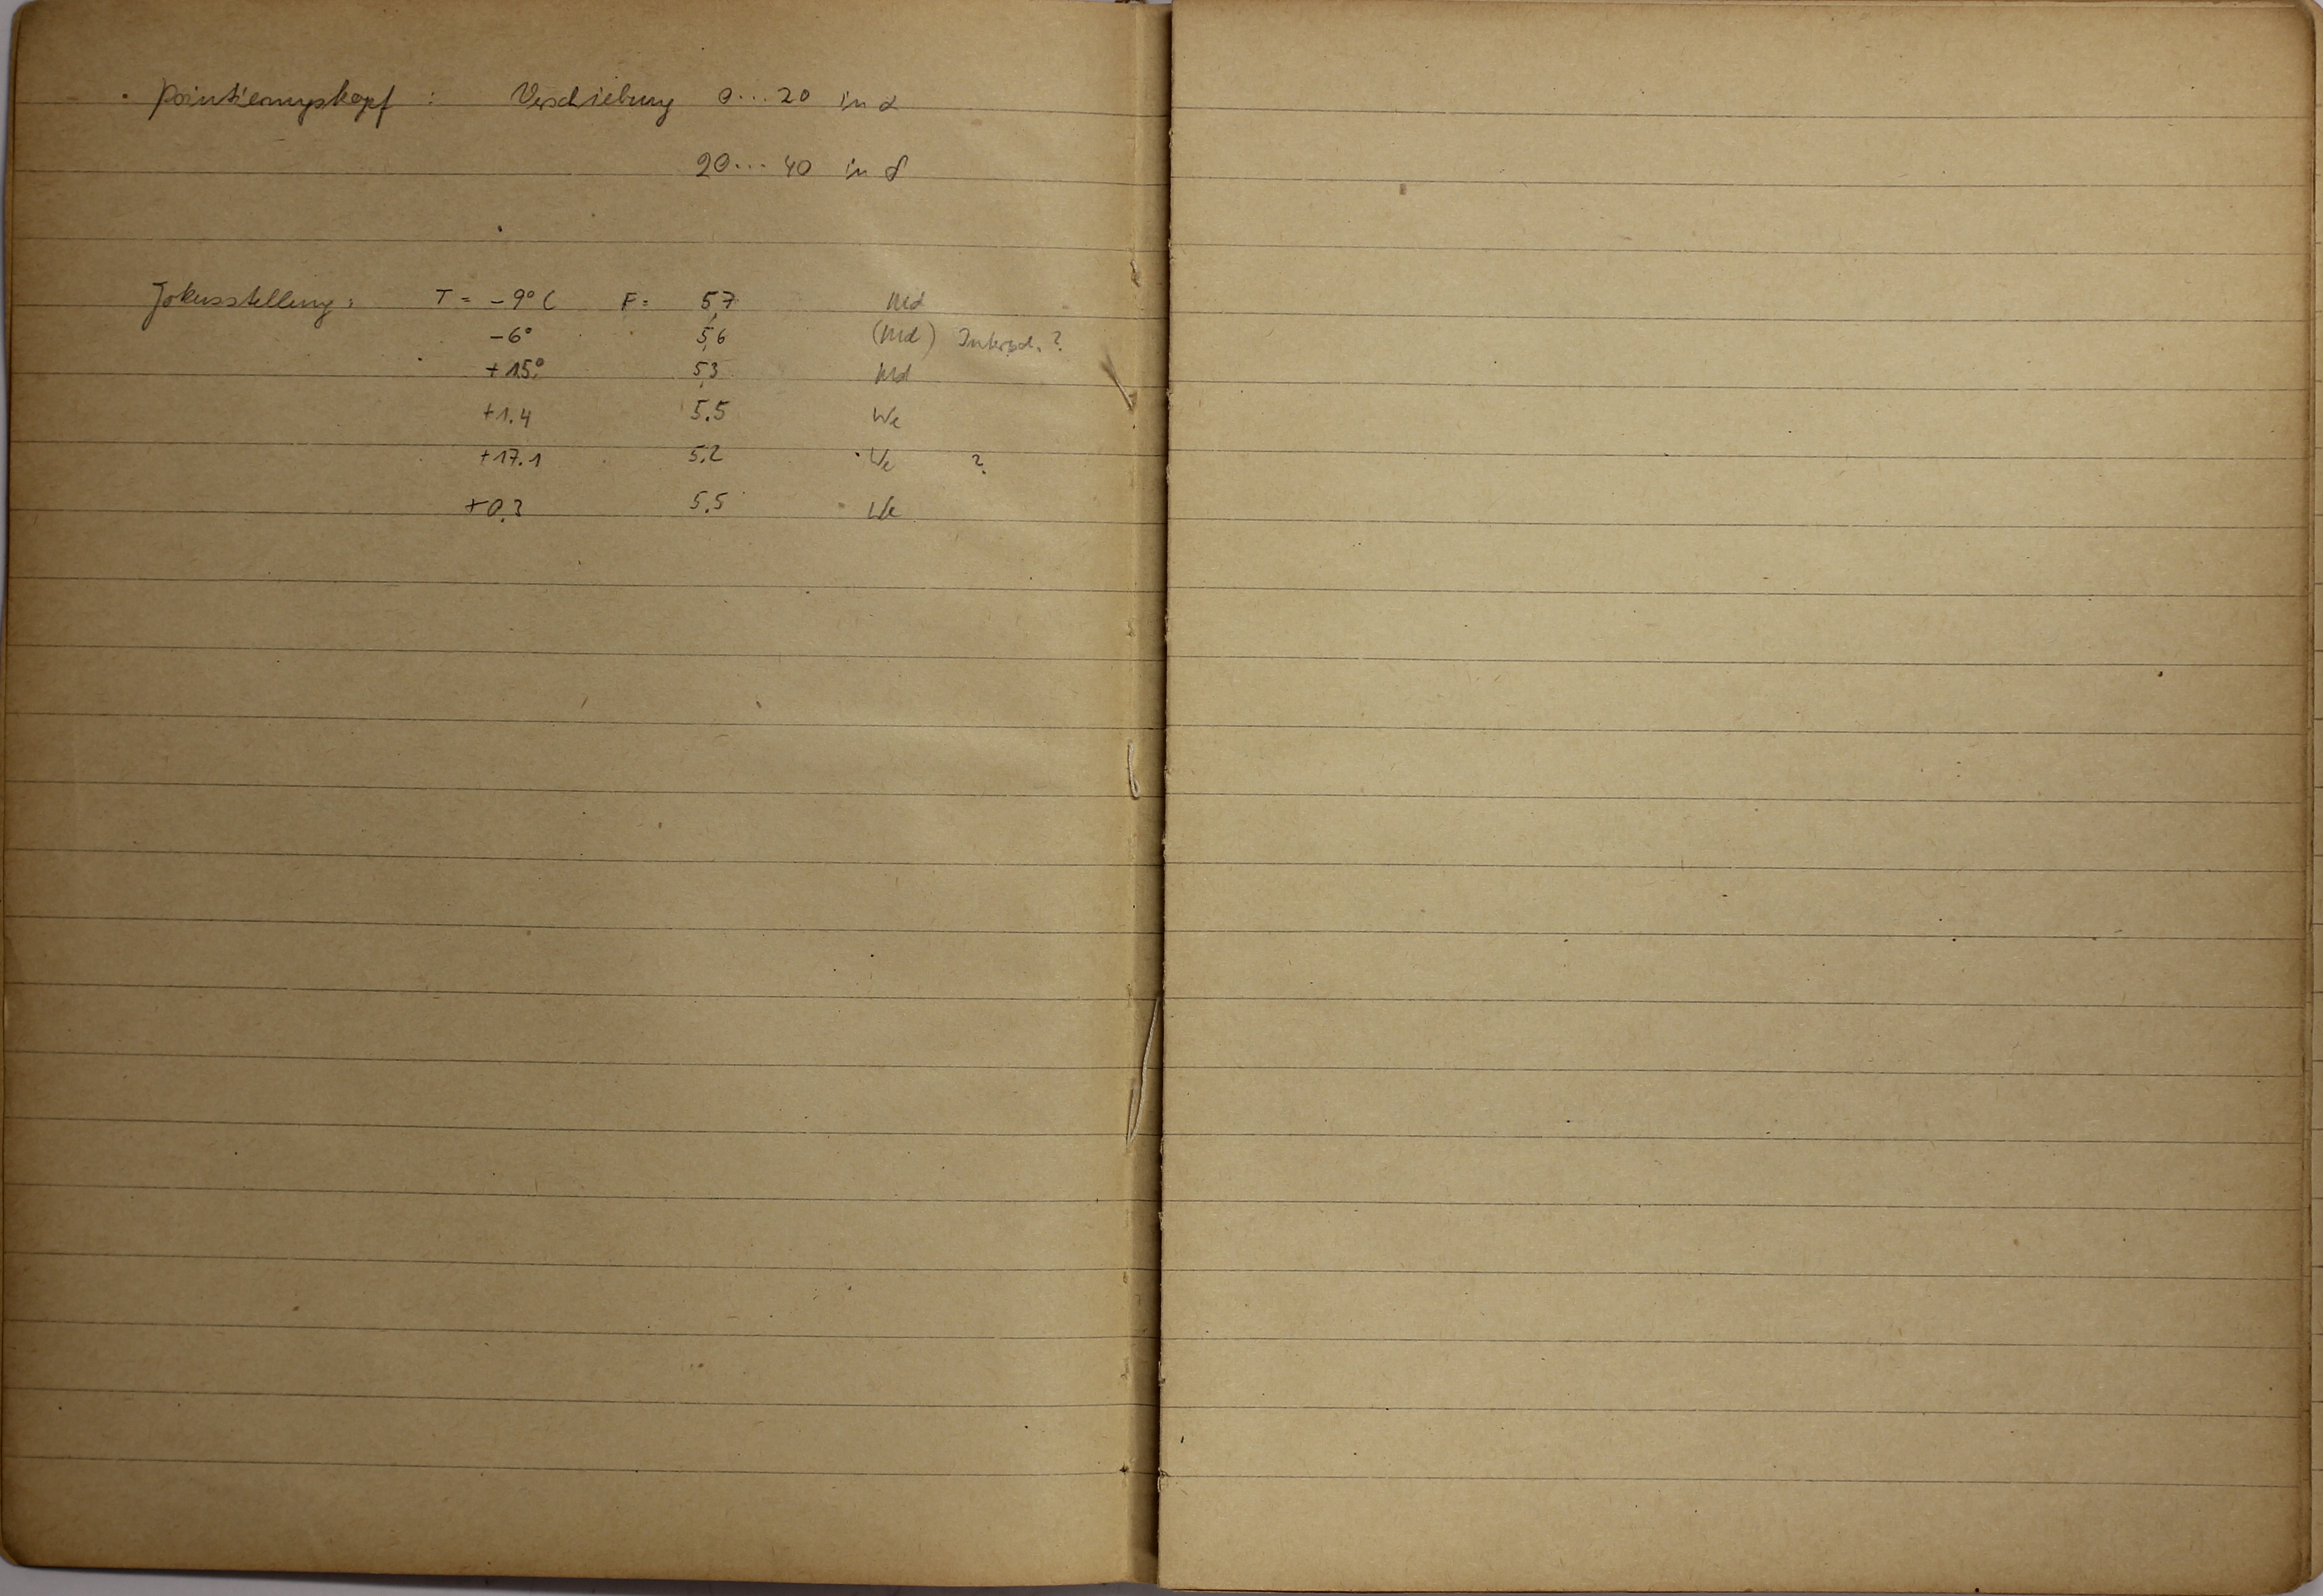 Pointierungskopf : Verschiebung 0...20 in α
20...40 in δ
Fokusstellung: T = -9°C F = 5,7 Md
-6° 5,6 (Md) ?
+15° 5,3 Md
+1.4 5.5 We
+17.1 5.2 We ?
+0.3 5.5 We